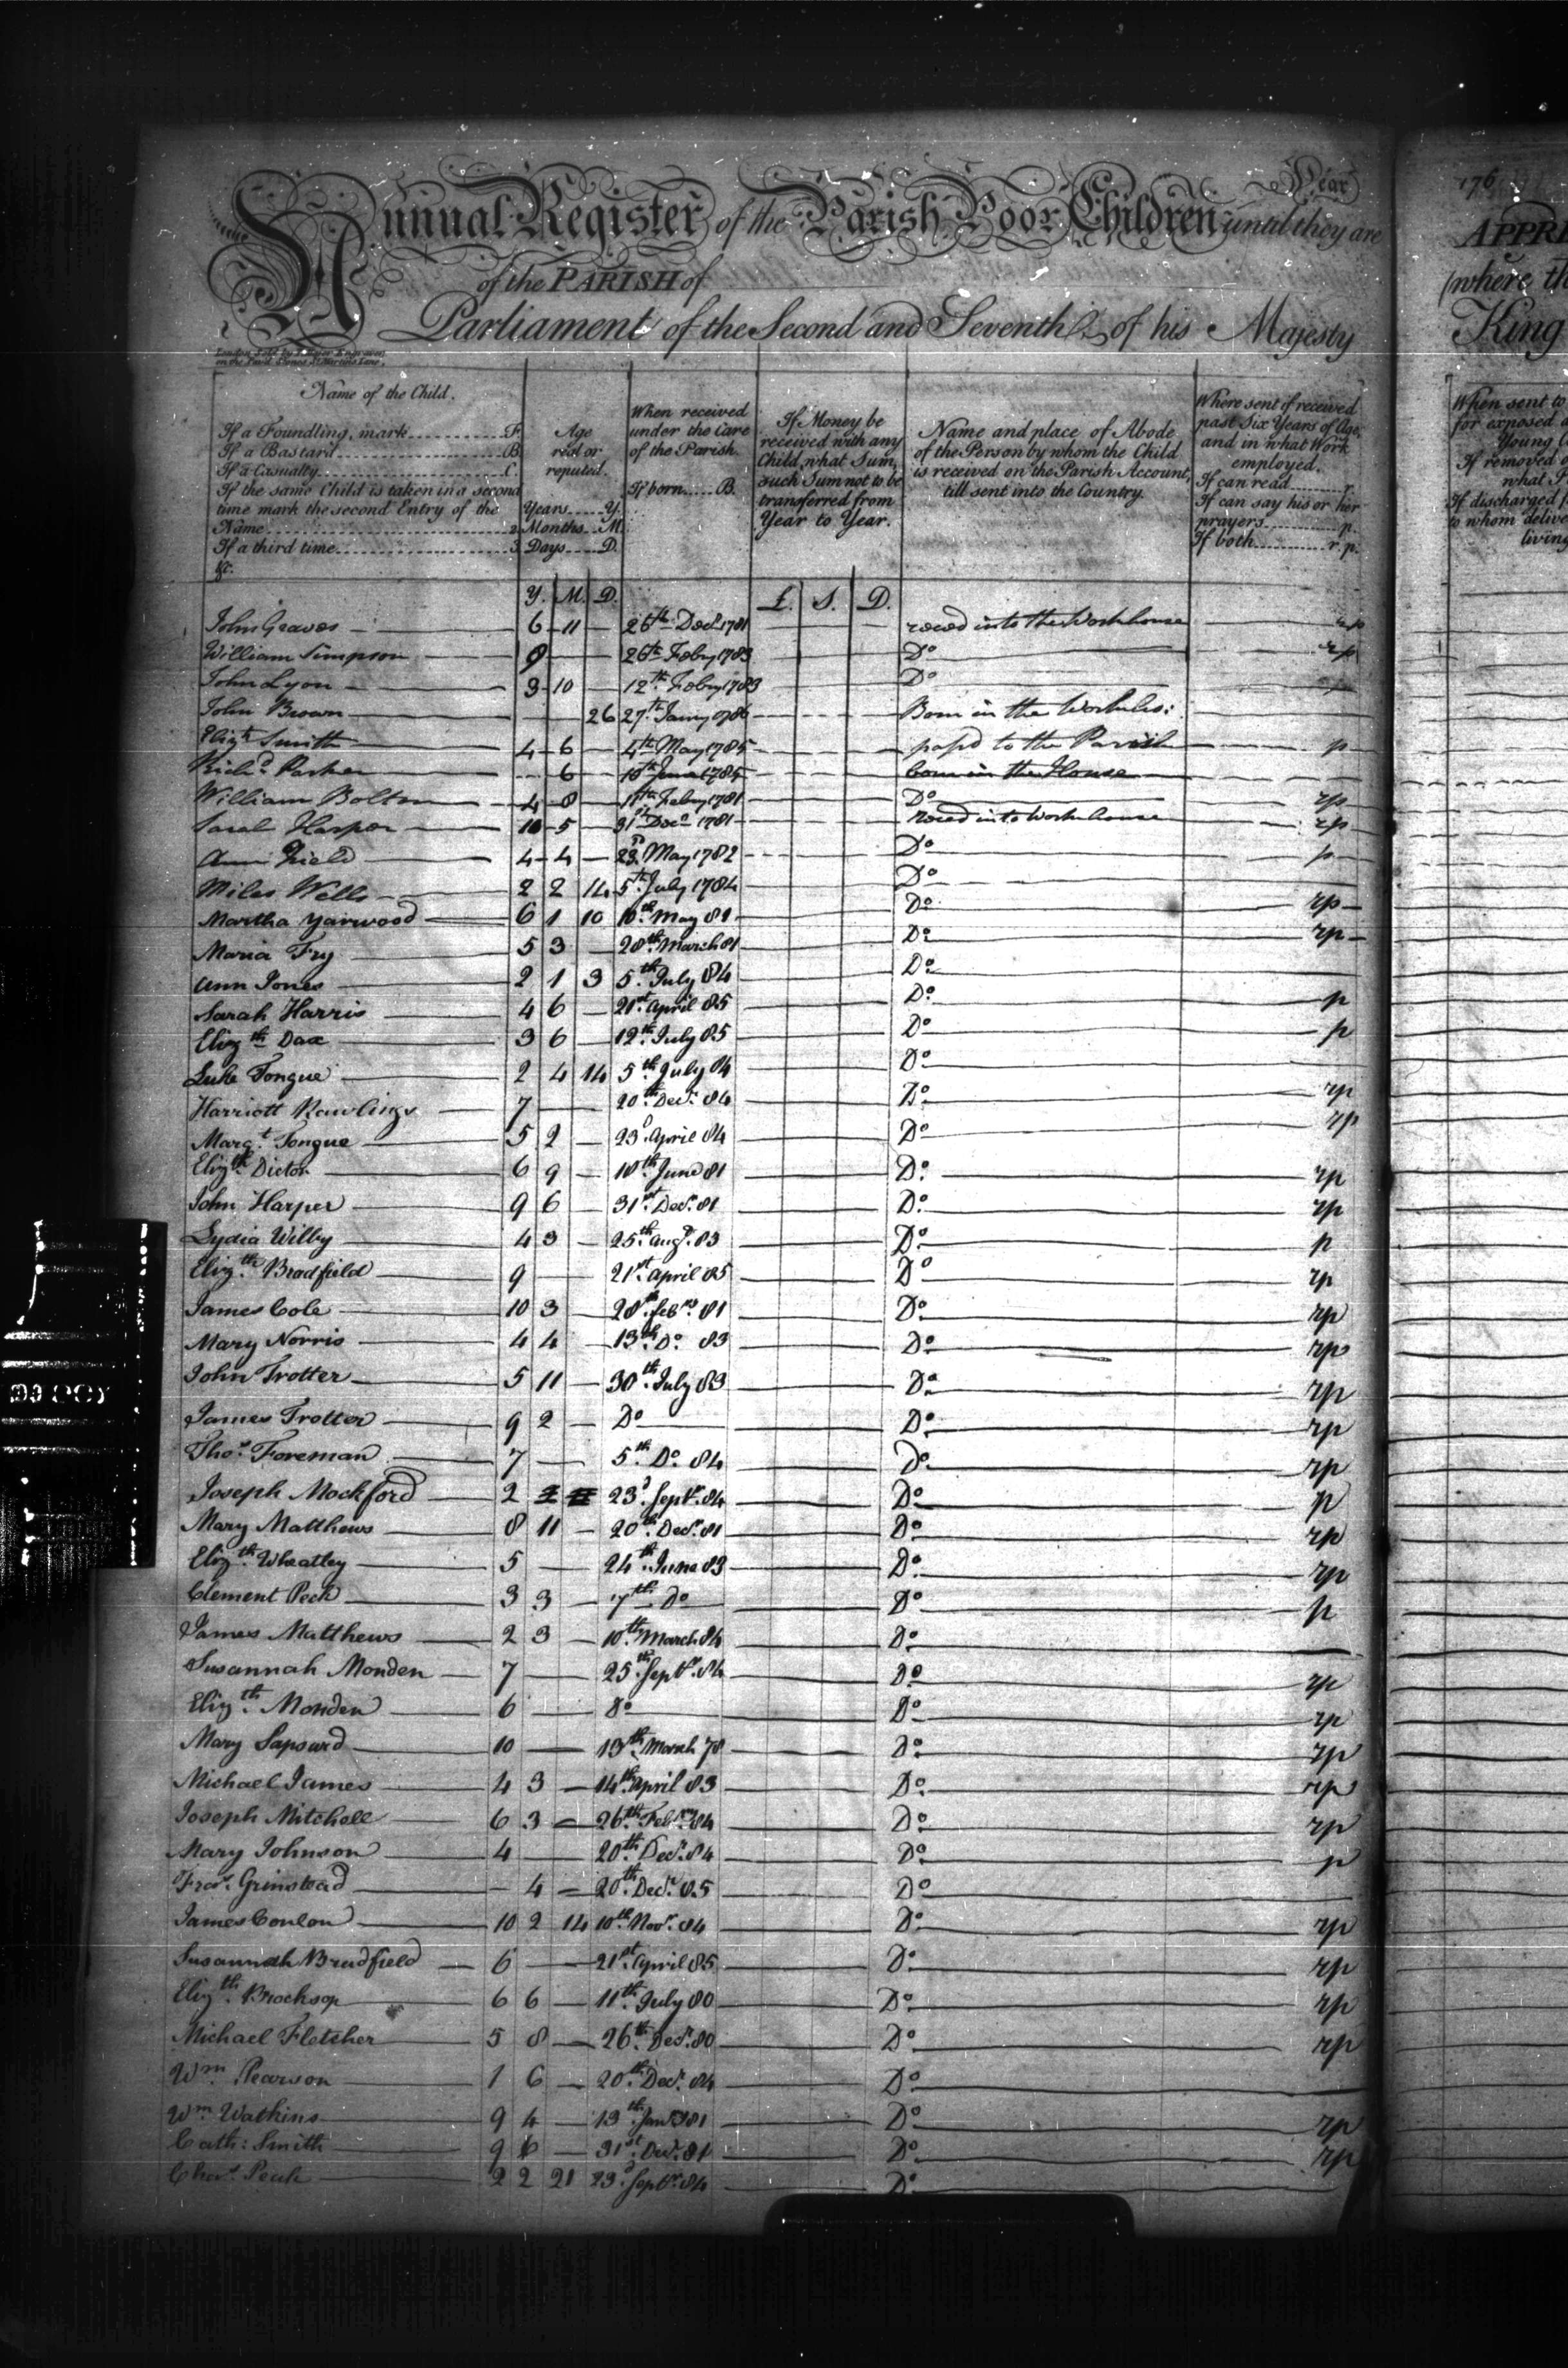 Year
Annual Register of the Parish Poor Children until they are
of the PARISH of
Parliament of the Second and Seventh of his Majesty
Name of the Child.
If a Foundling, mark F.
If a Bastard B.
If a Casualty C.
If the same Child is taken in a second
time mark the second Entry of the
Name 2.
If a third time 3.
&c.
Age
real or
reputed.
Years Y.
Months M.
Days D.
When received
under the Care
of the Parish.
If born B.
If Money be
received with any
Child, what Sum,
such Sum not to be
transferred from
Year to Year.
Name and place of Abode
of the Person by whom the Child
is received on the Parish Account,
till sent into the Country.
Where sent if received
past Six Years of Age,
and in what Work
employed.
If can read r.
If can say his or her
prayers p.
If both r.p.
Y. M. D. £. S. D.
John Graves 6 11 26th Decr 1781 reced into the Workhouse rp
William Simpson 8 26th Feby 1783 Do rp
John Lyon 3 10 12th Feby 1783 Do
John Brown 26 27th Jany 1786 Born in the Workhs:
Elizth Smith 4 6 4th May 1785 pass'd to the Parish p
Richd Parker 6 June 1785 born in the House
William Bolton 4 8 11th Feby 1781 Do rp
Sarah Harper 10 5 31st Decr 1781 reced into Workhouse rp
Ann Field 4 4 23d May 1782 Do p
Miles Wells 2 2 14 5th July 1784 Do
Martha Yarwood 6 1 10 10th May 81 Do rp
Maria Fry 5 3 28th March 81 Do rp
Ann Jones 2 1 3 5th July 84 Do
Sarah Harris 4 6 21st April 85 Do p
Elizth Dax 3 6 12th July 85 Do p
Luke Tongue 2 4 14 5th July 84 Do
Harriott Rawlings 7 20th Decr 84 Do rp
Margt Tongue 5 2 23d April 84 Do rp
Elizth Dictor 6 9 18th June 81 Do rp
John Harper 9 6 31st Decr 81 Do rp
Lydia Wilby 4 3 25th Augt 83 Do p
Elizth Bradfield 9 21st April 85 Do rp
James Cole 10 3 28th Feby 81 Do rp
Mary Norris 4 4 13th Do 83 Do rp
John Trotter 5 11 30th July 83 Do rp
James Trotter 9 2 Do Do rp
Thos Foreman 7 5th Do 84 Do rp
Joseph Mockford 2 23d Septr 84 Do p
Mary Matthews 8 11 20th Decr 81 Do rp
Elizth Wheatley 5 24th June 83 Do rp
Clement Peck 3 3 7th Do Do p
James Matthews 2 3 10th March 84 Do
Susannah Monden 7 25th Septr 84 Do rp
Elizth Monden 6 Do Do rp
Mary Sapsard 10 13th March 78 Do rp
Michael James 4 3 14th April 83 Do rp
Joseph Mitchell 6 3 26th Feby 84 Do rp
Mary Johnson 4 20th Decr 84 Do p
Fras Grinstead 4 20th Decr 85 Do
James Conlon 10 2 14 10th Novr 84 Do rp
Susannah Bradfield 6 21st April 85 Do rp
Elizth Brocksop 6 6 11th July 80 Do rp
Michael Fletcher 5 8 26th Decr 80 Do rp
Wm Pearson 1 6 20th Decr 84 Do
Wm Watkins 9 4 13th Jany 81 Do rp
Cath: Smith 9 6 31st Decr 81 Do rp
Chas Peck 2 2 21 23d Septr 84 Do
176
APPRE
(where th
King
When sent to
If removed
If discharged
to whom
living